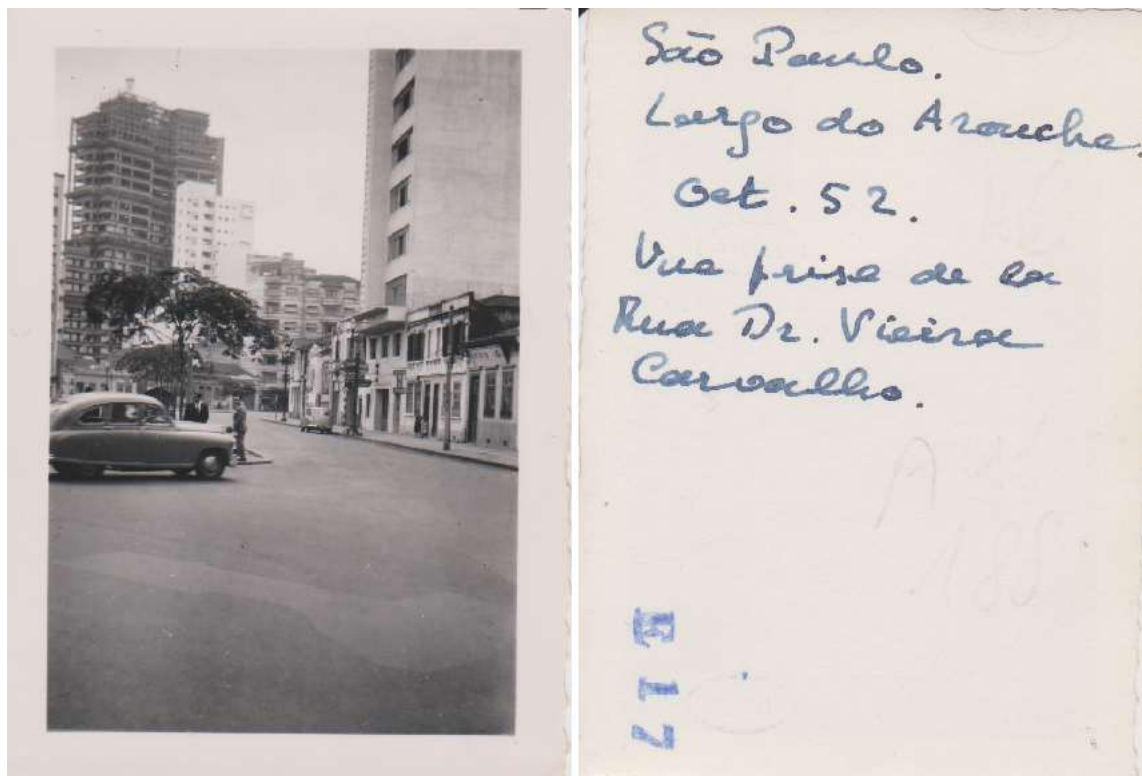 São Paulo.
Largo do Arouche.
Oct. 52.
Vue prise de la
Rua Dr. Vieira
Carvalho.
E 17